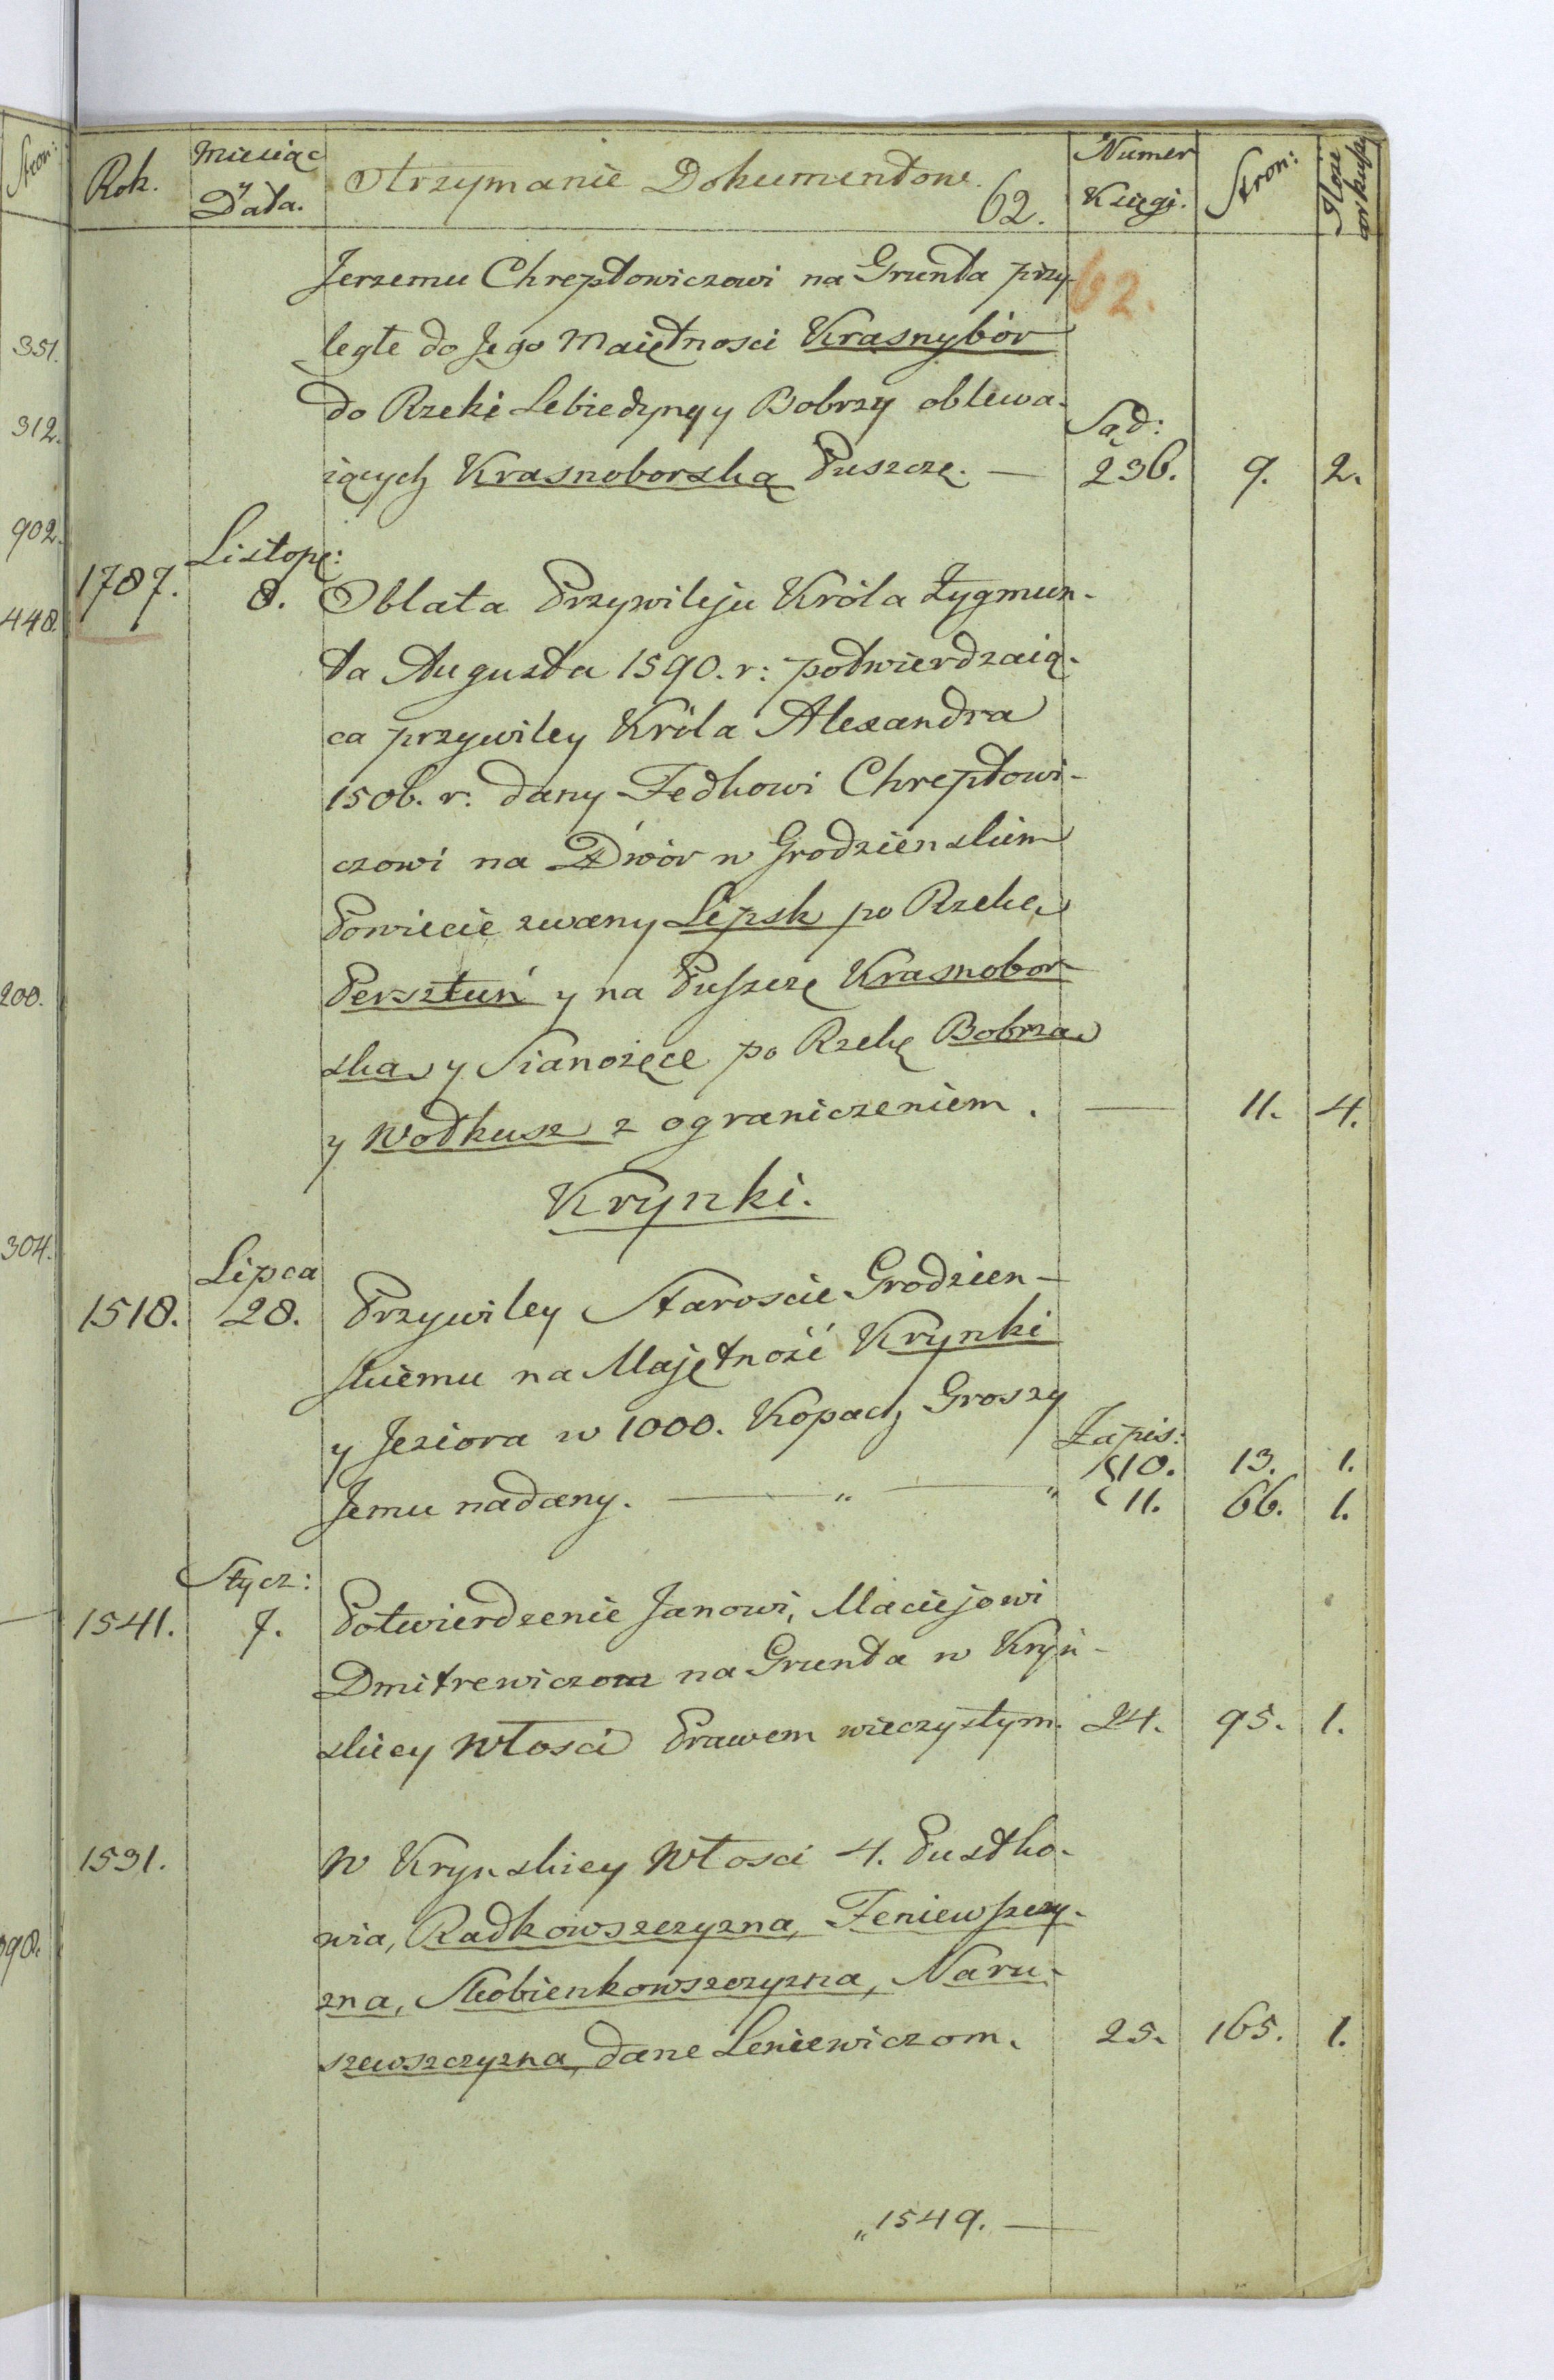 Stron:
Rok. Miesiąc y Data. Otrzymanie Dokumentow. 62. Numer Księgi. Stron: Ilość arkuszy
62.
Jerzemu Chreptowiczowi na Grunta przy-
351.
ległe do Jego Maiętnosci Krasnybór
312.
do Rzeki Lebiedzyny y Bobrzy oblewa- Sąd:
iących Krasnoborską Puszczę. — 236. 9. 2.
902.
Listop:
448.
1787. 8. Oblata Przywileju Króla Zygmun-
ta Augusta 1590. r: potwierdzaią-
ca przywiley Króla Alexandra
1506. r. dany Fedkowi Chreptowi-
czowi na Dwór w Grodzienskim
Powiecie zwany Lipsk po Rzekę
200.
Persztuń y na Puszczę Krasnobor-
ską y Sianożęce po Rzekę Bobrzę
y Wołkusz z ograniczeniem. — 11. 4.
Krynki.
304.
Lipca
1518. 28. Przywiley Staroscie Grodzien-
skiemu na Majętność Krynki
y Jeziora w 1000. Kopach Groszy Zapis:
10. 13. 1.
Jemu nadany. — „ — „ 11. 66. 1.
Stycz:
1541. 7. Potwierdzenie Janowi, Maciejowi
Dmitrewiczom na Grunta w Kryń-
skiey Włosci Prawem wieczystym. 24. 95. 1.
1531. W Krynskiey Włosci 4. Pustko-
wia, Radkowszczyzna, Feniewszczy-
zna, Skobienkowszczyzna, Naru-
szewszczyzna, dane Leniewiczom. 25. 165. 1.
„1549. —